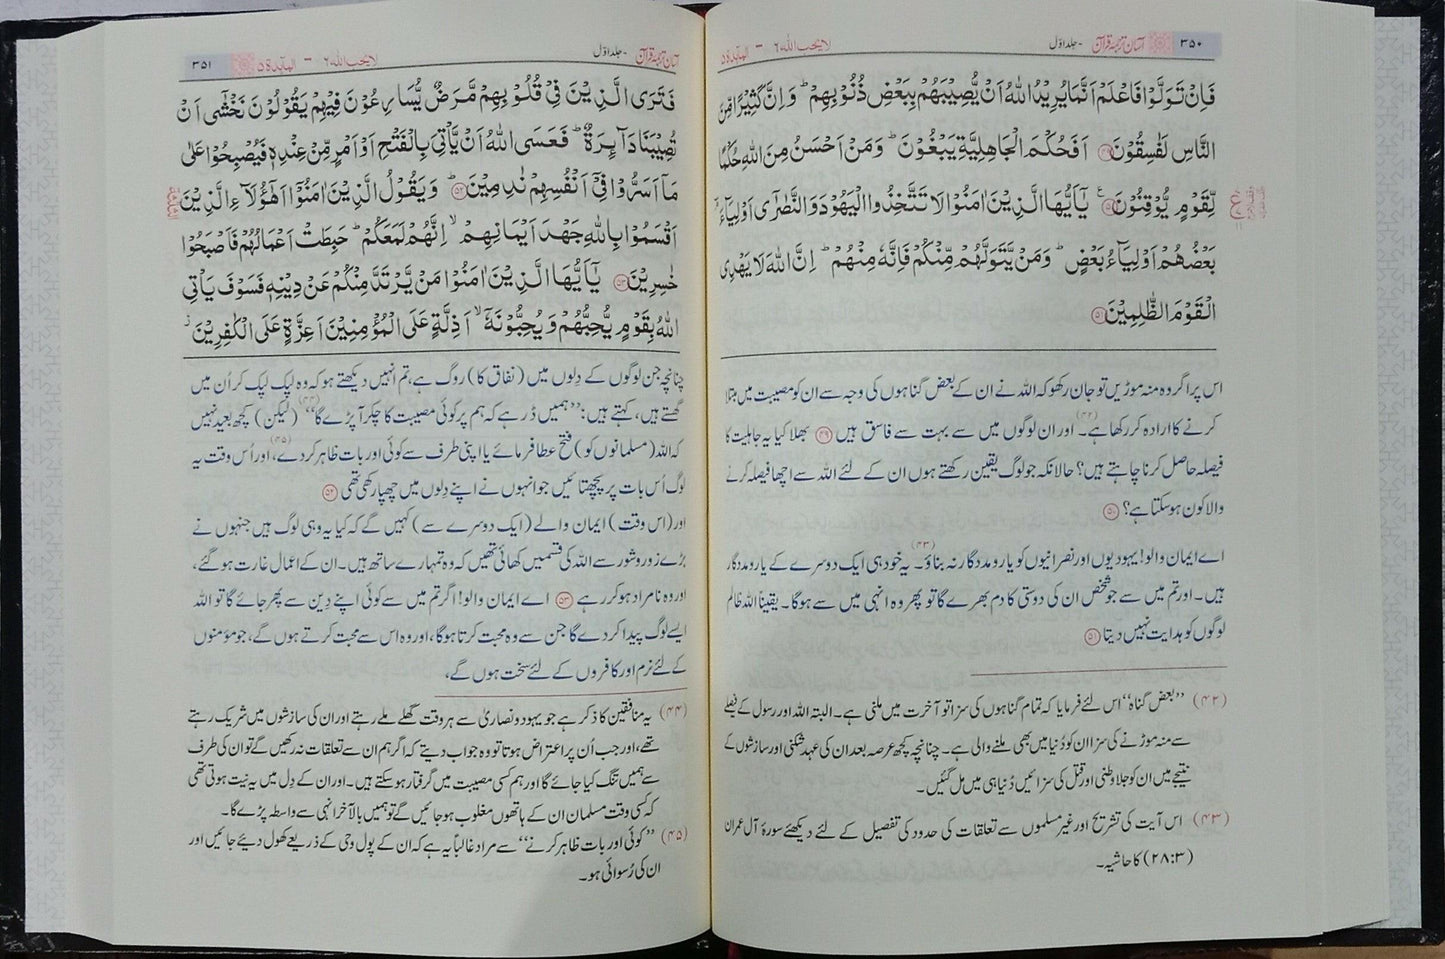 ۳۵۰ آسان ترجمۂ قرآن - جلد اوّل لا يحب الله ۶ - المآئدة ۵
فَاِنْ تَوَلَّوْا فَاعْلَمْ اَنَّمَا يُرِيْدُ اللّٰهُ اَنْ يُّصِيْبَهُمْ بِبَعْضِ ذُنُوْبِهِمْ ؕ وَاِنَّ كَثِيْرًا مِّنَ
النَّاسِ لَفٰسِقُوْنَ ﴿۴۹﴾ اَفَحُكْمَ الْجَاهِلِيَّةِ يَبْغُوْنَ ؕ وَمَنْ اَحْسَنُ مِنَ اللّٰهِ حُكْمًا
لِّقَوْمٍ يُّوْقِنُوْنَ ﴿۵۰﴾ يٰۤاَيُّهَا الَّذِيْنَ اٰمَنُوْا لَا تَتَّخِذُوا الْيَهُوْدَ وَالنَّصٰرٰۤى اَوْلِيَآءَ ۘ
بَعْضُهُمْ اَوْلِيَآءُ بَعْضٍ ؕ وَمَنْ يَّتَوَلَّهُمْ مِّنْكُمْ فَاِنَّهٗ مِنْهُمْ ؕ اِنَّ اللّٰهَ لَا يَهْدِى
الْقَوْمَ الظّٰلِمِيْنَ ﴿۵۱﴾
اس پر اگر وہ منہ موڑیں تو جان رکھو کہ اللہ نے ان کے بعض گناہوں کی وجہ سے ان کو مصیبت میں مبتلا
کرنے کا ارادہ کر رکھا ہے۔(۴۲) اور ان لوگوں میں سے بہت سے فاسق ہیں ﴿۴۹﴾ بھلا کیا یہ جاہلیت کا
فیصلہ حاصل کرنا چاہتے ہیں؟ حالانکہ جو لوگ یقین رکھتے ہوں ان کے لئے اللہ سے اچھا فیصلہ کرنے
والا کون ہو سکتا ہے؟ ﴿۵۰﴾
اے ایمان والو! یہودیوں اور نصرانیوں کو یار و مددگار نہ بناؤ۔(۴۳) یہ خود ہی ایک دوسرے کے یار و مددگار
ہیں۔ اور تم میں سے جو شخص ان کی دوستی کا دم بھرے گا تو پھر وہ انہی میں سے ہوگا۔ یقیناً اللہ ظالم
لوگوں کو ہدایت نہیں دیتا ﴿۵۱﴾
(۴۲) ’’بعض گناہ‘‘ اس لئے فرمایا کہ تمام گناہوں کی سزا تو آخرت میں ملنی ہے۔ البتہ اللہ اور رسول کے فیصلے
سے منہ موڑنے کی سزا ان کو دُنیا میں بھی ملنے والی ہے۔ چنانچہ کچھ عرصہ بعد ان کی عہد شکنی اور سازشوں کے
نتیجے میں ان کو جلاوطنی اور قتل کی سزائیں دُنیا ہی میں مل گئیں۔
(۴۳) اس آیت کی تشریح اور غیر مسلموں سے تعلقات کی حدود کی تفصیل کے لئے دیکھئے سورۂ آل عمران
(۲۸:۳) کا حاشیہ۔
آسان ترجمۂ قرآن - جلد اوّل لا يحب الله ۶ - المآئدة ۵ ۳۵۱
فَتَرَى الَّذِيْنَ فِىْ قُلُوْبِهِمْ مَّرَضٌ يُّسَارِعُوْنَ فِيْهِمْ يَقُوْلُوْنَ نَخْشٰۤى اَنْ
تُصِيْبَنَا دَآئِرَةٌ ؕ فَعَسَى اللّٰهُ اَنْ يَّاْتِىَ بِالْفَتْحِ اَوْ اَمْرٍ مِّنْ عِنْدِهٖ فَيُصْبِحُوْا عَلٰى
مَاۤ اَسَرُّوْا فِىْۤ اَنْفُسِهِمْ نٰدِمِيْنَ ﴿۵۲﴾ؕ وَيَقُوْلُ الَّذِيْنَ اٰمَنُوْۤا اَهٰۤؤُلَآءِ الَّذِيْنَ
اَقْسَمُوْا بِاللّٰهِ جَهْدَ اَيْمَانِهِمْ ۙ اِنَّهُمْ لَمَعَكُمْ ؕ حَبِطَتْ اَعْمَالُهُمْ فَاَصْبَحُوْا
خٰسِرِيْنَ ﴿۵۳﴾ يٰۤاَيُّهَا الَّذِيْنَ اٰمَنُوْا مَنْ يَّرْتَدَّ مِنْكُمْ عَنْ دِيْنِهٖ فَسَوْفَ يَاْتِى
اللّٰهُ بِقَوْمٍ يُّحِبُّهُمْ وَيُحِبُّوْنَهٗۤ ۙ اَذِلَّةٍ عَلَى الْمُؤْمِنِيْنَ اَعِزَّةٍ عَلَى الْكٰفِرِيْنَ ۫
چنانچہ جن لوگوں کے دِلوں میں (نفاق کا) روگ ہے، تم انہیں دیکھتے ہو کہ وہ لپک لپک کر اُن میں
گھستے ہیں، کہتے ہیں: ’’ہمیں ڈر ہے کہ ہم پر کوئی مصیبت کا چکر آ پڑے گا‘‘(۴۴) (لیکن) کچھ بعید نہیں
کہ اللہ (مسلمانوں کو) فتح عطا فرمائے یا اپنی طرف سے کوئی اور بات ظاہر کردے،(۴۵) اور اُس وقت یہ
لوگ اُس بات پر پچھتائیں جو انہوں نے اپنے دِلوں میں چھپا رکھی تھی ﴿۵۲﴾
اور (اس وقت) ایمان والے (ایک دوسرے سے) کہیں گے کہ کیا یہ وہی لوگ ہیں جنہوں نے
بڑے زور و شور سے اللہ کی قسمیں کھائی تھیں کہ وہ تمہارے ساتھ ہیں۔ ان کے اعمال غارت ہوگئے،
اور وہ نامراد ہو کر رہے ﴿۵۳﴾ اے ایمان والو! اگر تم میں سے کوئی اپنے دِین سے پھر جائے گا تو اللہ
ایسے لوگ پیدا کردے گا جن سے وہ محبت کرتا ہوگا، اور وہ اس سے محبت کرتے ہوں گے، جو مؤمنوں
کے لئے نرم اور کافروں کے لئے سخت ہوں گے،
(۴۴) یہ منافقین کا ذکر ہے جو یہود و نصاریٰ سے ہر وقت گھلے ملے رہتے اور ان کی سازشوں میں شریک رہتے
تھے، اور جب اُن پر اعتراض ہوتا تو وہ جواب دیتے کہ اگر ہم ان سے تعلقات نہ رکھیں گے تو ان کی طرف
سے ہمیں تنگ کیا جائے گا اور ہم کسی مصیبت میں گرفتار ہو سکتے ہیں۔ اور ان کے دِل میں یہ نیت ہوتی تھی
کہ کسی وقت مسلمان ان کے ہاتھوں مغلوب ہو جائیں گے تو ہمیں بالآخر انہی سے واسطہ پڑے گا۔
(۴۵) ’’کوئی اور بات ظاہر کرنے‘‘ سے مراد غالباً یہ ہے کہ ان کے پول وحی کے ذریعے کھول دیئے جائیں اور
ان کی رُسوائی ہو۔